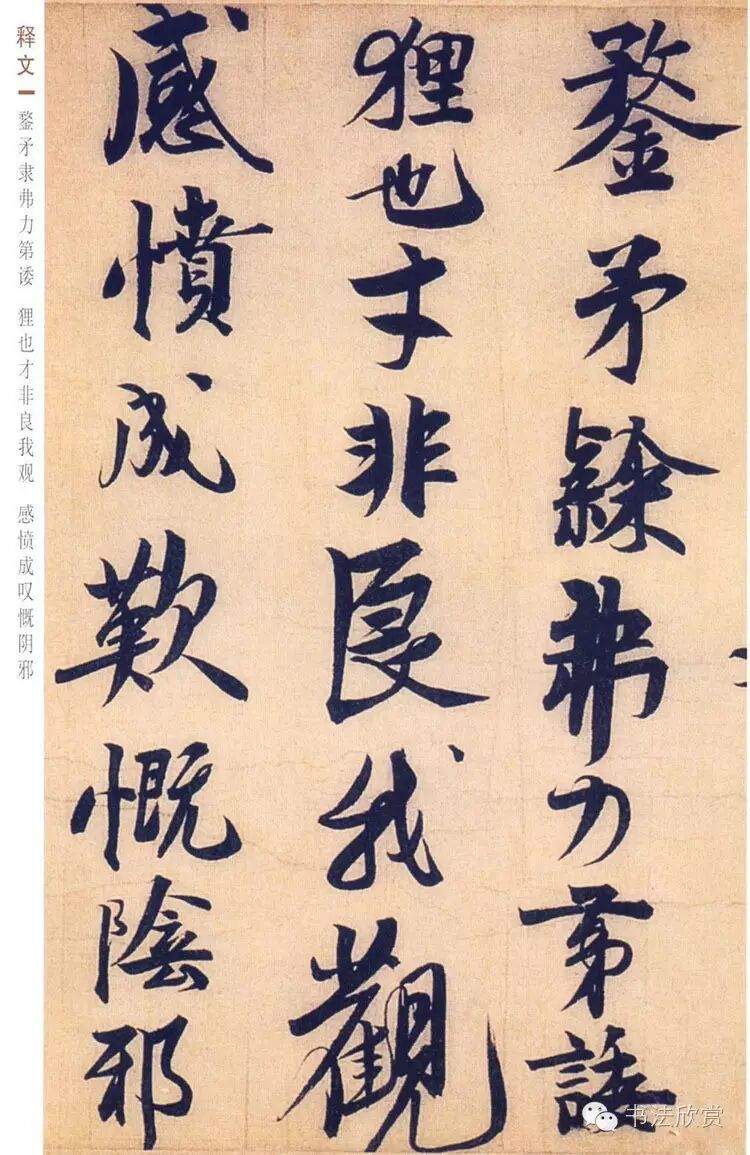 鍪矛隸弗力第諉
狸也才非良我觀
感憤成歎慨陰邪
释文
鍪矛隶弗力第诿 狸也才非良我观 感愤成叹慨阴邪
书法欣赏